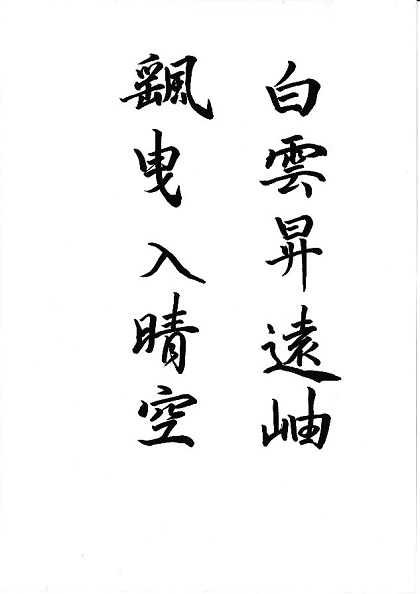 白雲昇遠岫
飖曳入晴空